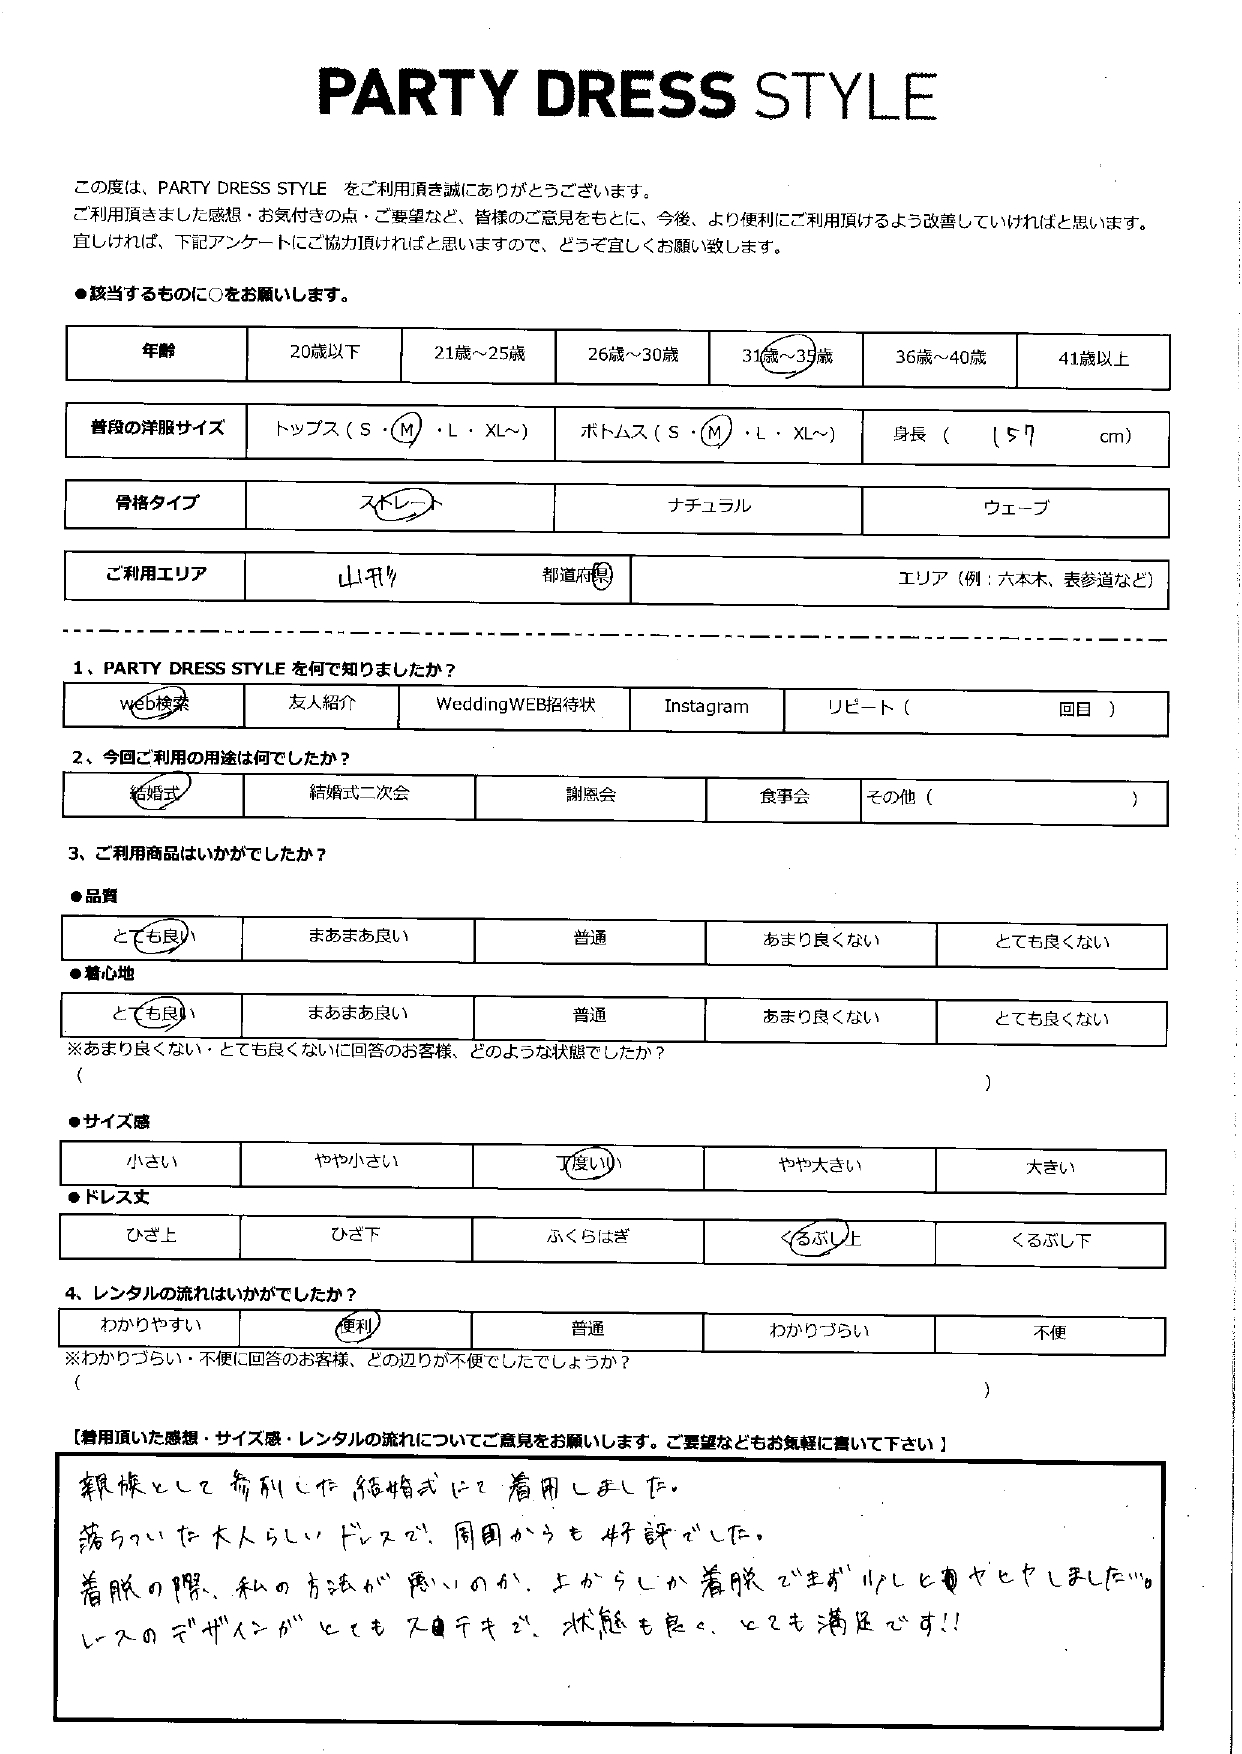 PARTY DRESS STYLE
この度は、PARTY DRESS STYLE をご利用頂き誠にありがとうございます。
ご利用頂きました感想・お気付きの点・ご要望など、皆様のご意見をもとに、今後、より便利にご利用頂けるよう改善していければと思います。
宜しければ、下記アンケートにご協力頂ければと思いますので、どうぞ宜しくお願い致します。
●該当するものに○をお願いします。
年齢 20歳以下 21歳～25歳 26歳～30歳 31歳～35歳 36歳～40歳 41歳以上
普段の洋服サイズ トップス（S・M・L・XL～） ボトムス（S・M・L・XL～） 身長（ 157 cm）
骨格タイプ ストレート ナチュラル ウェーブ
ご利用エリア 山形 都道府県 エリア（例：六本木、表参道など）
1、PARTY DRESS STYLE を何で知りましたか？
web検索 友人紹介 WeddingWEB招待状 Instagram リピート（ 回目 ）
2、今回ご利用の用途は何でしたか？
結婚式 結婚式二次会 謝恩会 食事会 その他（ ）
3、ご利用商品はいかがでしたか？
●品質
とても良い まあまあ良い 普通 あまり良くない とても良くない
●着心地
とても良い まあまあ良い 普通 あまり良くない とても良くない
※あまり良くない・とても良くないに回答のお客様、どのような状態でしたか？
（ ）
●サイズ感
小さい やや小さい 丁度いい やや大きい 大きい
●ドレス丈
ひざ上 ひざ下 ふくらはぎ くるぶし上 くるぶし下
4、レンタルの流れはいかがでしたか？
わかりやすい 便利 普通 わかりづらい 不便
※わかりづらい・不便に回答のお客様、どの辺りが不便でしたでしょうか？
（ ）
【着用頂いた感想・サイズ感・レンタルの流れについてご意見をお願いします。ご要望などもお気軽に書いて下さい】
親族として参列した結婚式にて着用しました。
落ちついた大人らしいドレスで、周囲からも好評でした。
着脱の際、私の方法が悪いのか、上からしか着脱できず少しヒヤヒヤしました…。
レースのデザインがとてもステキで、状態も良く、とても満足です!!